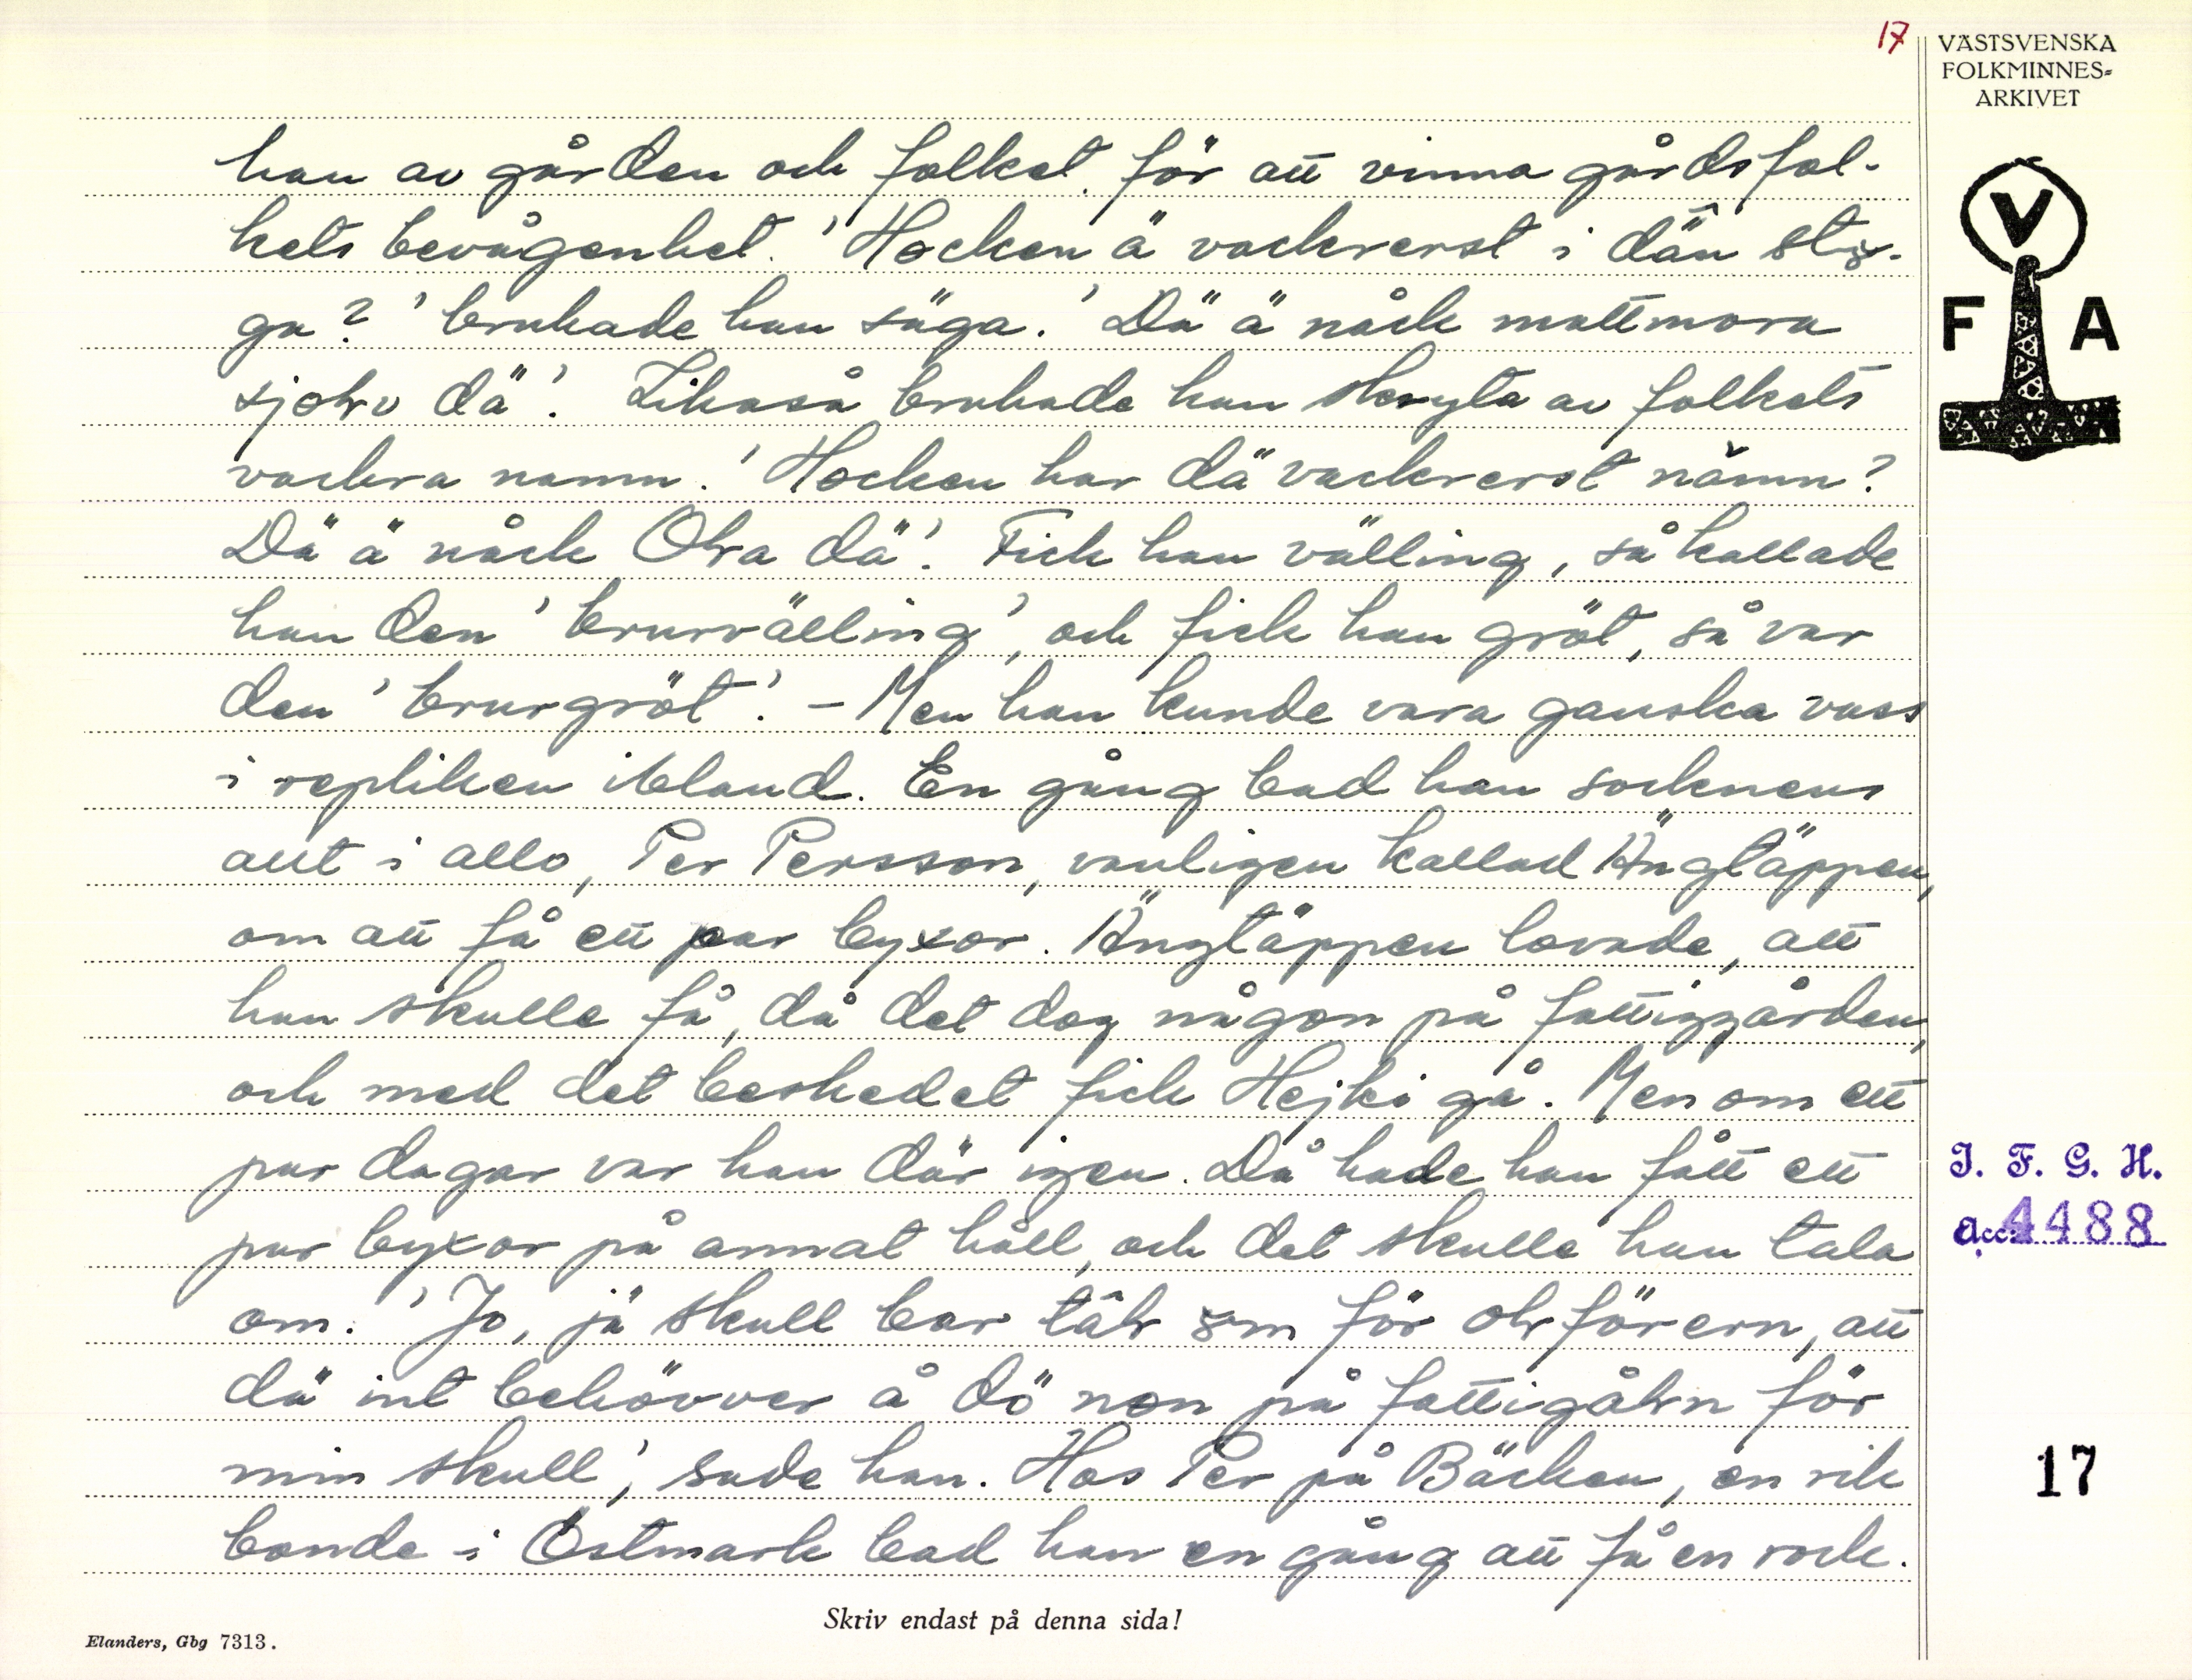 17
VÄSTSVENSKA
FOLKMINNES-
ARKIVET
V
F A
han av gården och folket för att vinna gårdsfol-
kets bevågenhet. 'Hocken ä vackrerst i dän stu-
ga?' brukade han säga. 'Dä ä nåck mattmora
sjolv dä'. Likaså brukade han skryta av folkets
vackra namn. 'Hocken har dä vackrerst nämn?
Dä ä nåck Ola dä'. Fick han välling, så kallade
han den 'brurvälling', och fick han gröt, så var
den 'brurgröt'. – Men han kunde vara ganska vass
i repliken ibland. En gång bad han socknens
allt i allo, Per Persson, vanligen kallad Ängtäppen,
om att få ett par byxor. Ängtäppen lovade, att
han skulle få, då det dog någon på fattiggården,
och med det beskedet fick Hejki gå. Men om ett
par dagar var han där igen. Då hade han fått ett
par byxor på annat håll, och det skulle han tala
om. 'Jo, jä skull bar tâl om för olförern, att
dä int behövver å dö non på fattigåln för
min skull', sade han. Hos Per på Bäcken, en rik
bonde i Östmark bad han en gång att få en rock.
I. F. G. H.
Acc. 4488
17
Skriv endast på denna sida!
Elanders, Gbg 7313.